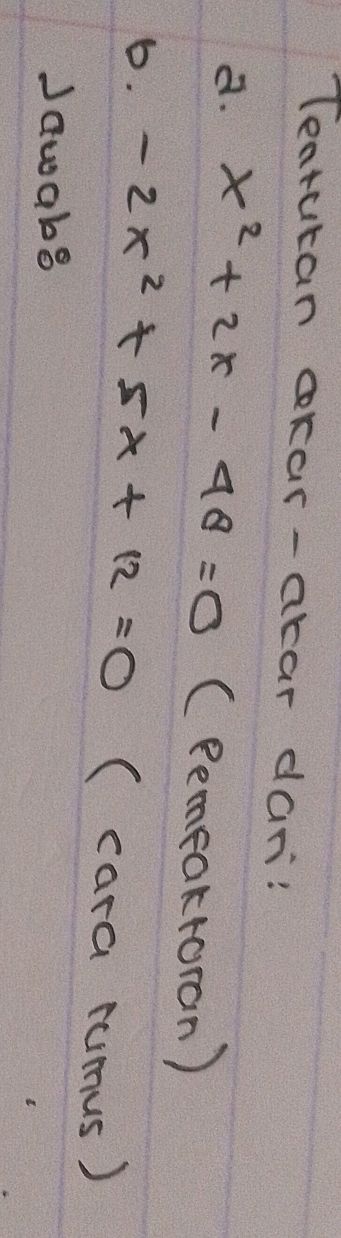 Tentukan akar-akar dari:
a. x² + 2x - 48 = 0 (Pemfaktoran)
b. -2x² + 5x + 12 = 0 (cara rumus)
Jawab: